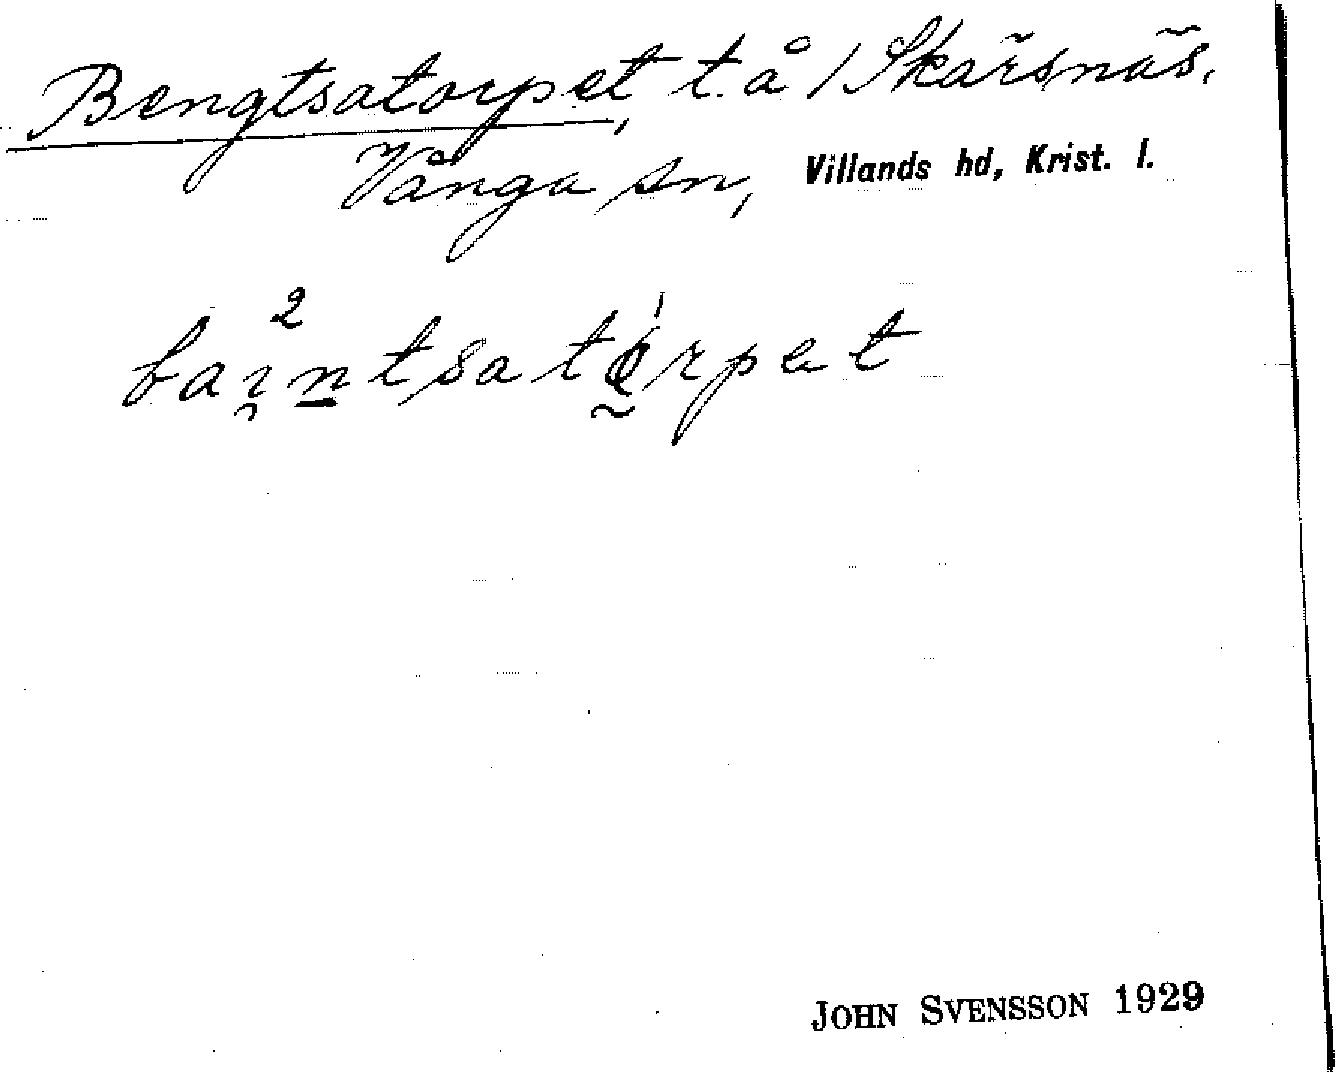 Bengtsatorpet, t. å Skärsnäs,
Vånga sn, Villands hd, Krist. l.
ba²i̯n̲tsatǿ̰rpet
JOHN SVENSSON 1929